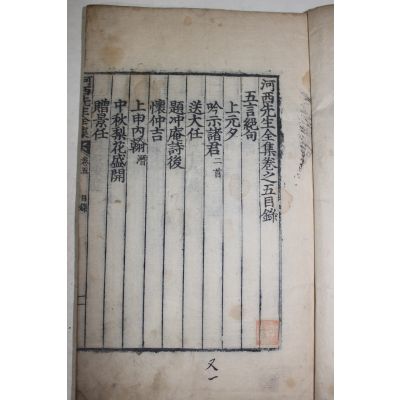 河西先生全集卷之五目錄
五言絕句
上元夕
吟示諸君二首
送大任
題冲庵詩後
懷仲吉
上申內翰潛
中秋梨花盛開
贈景任
河西先生全集 卷五 目錄 一
又一